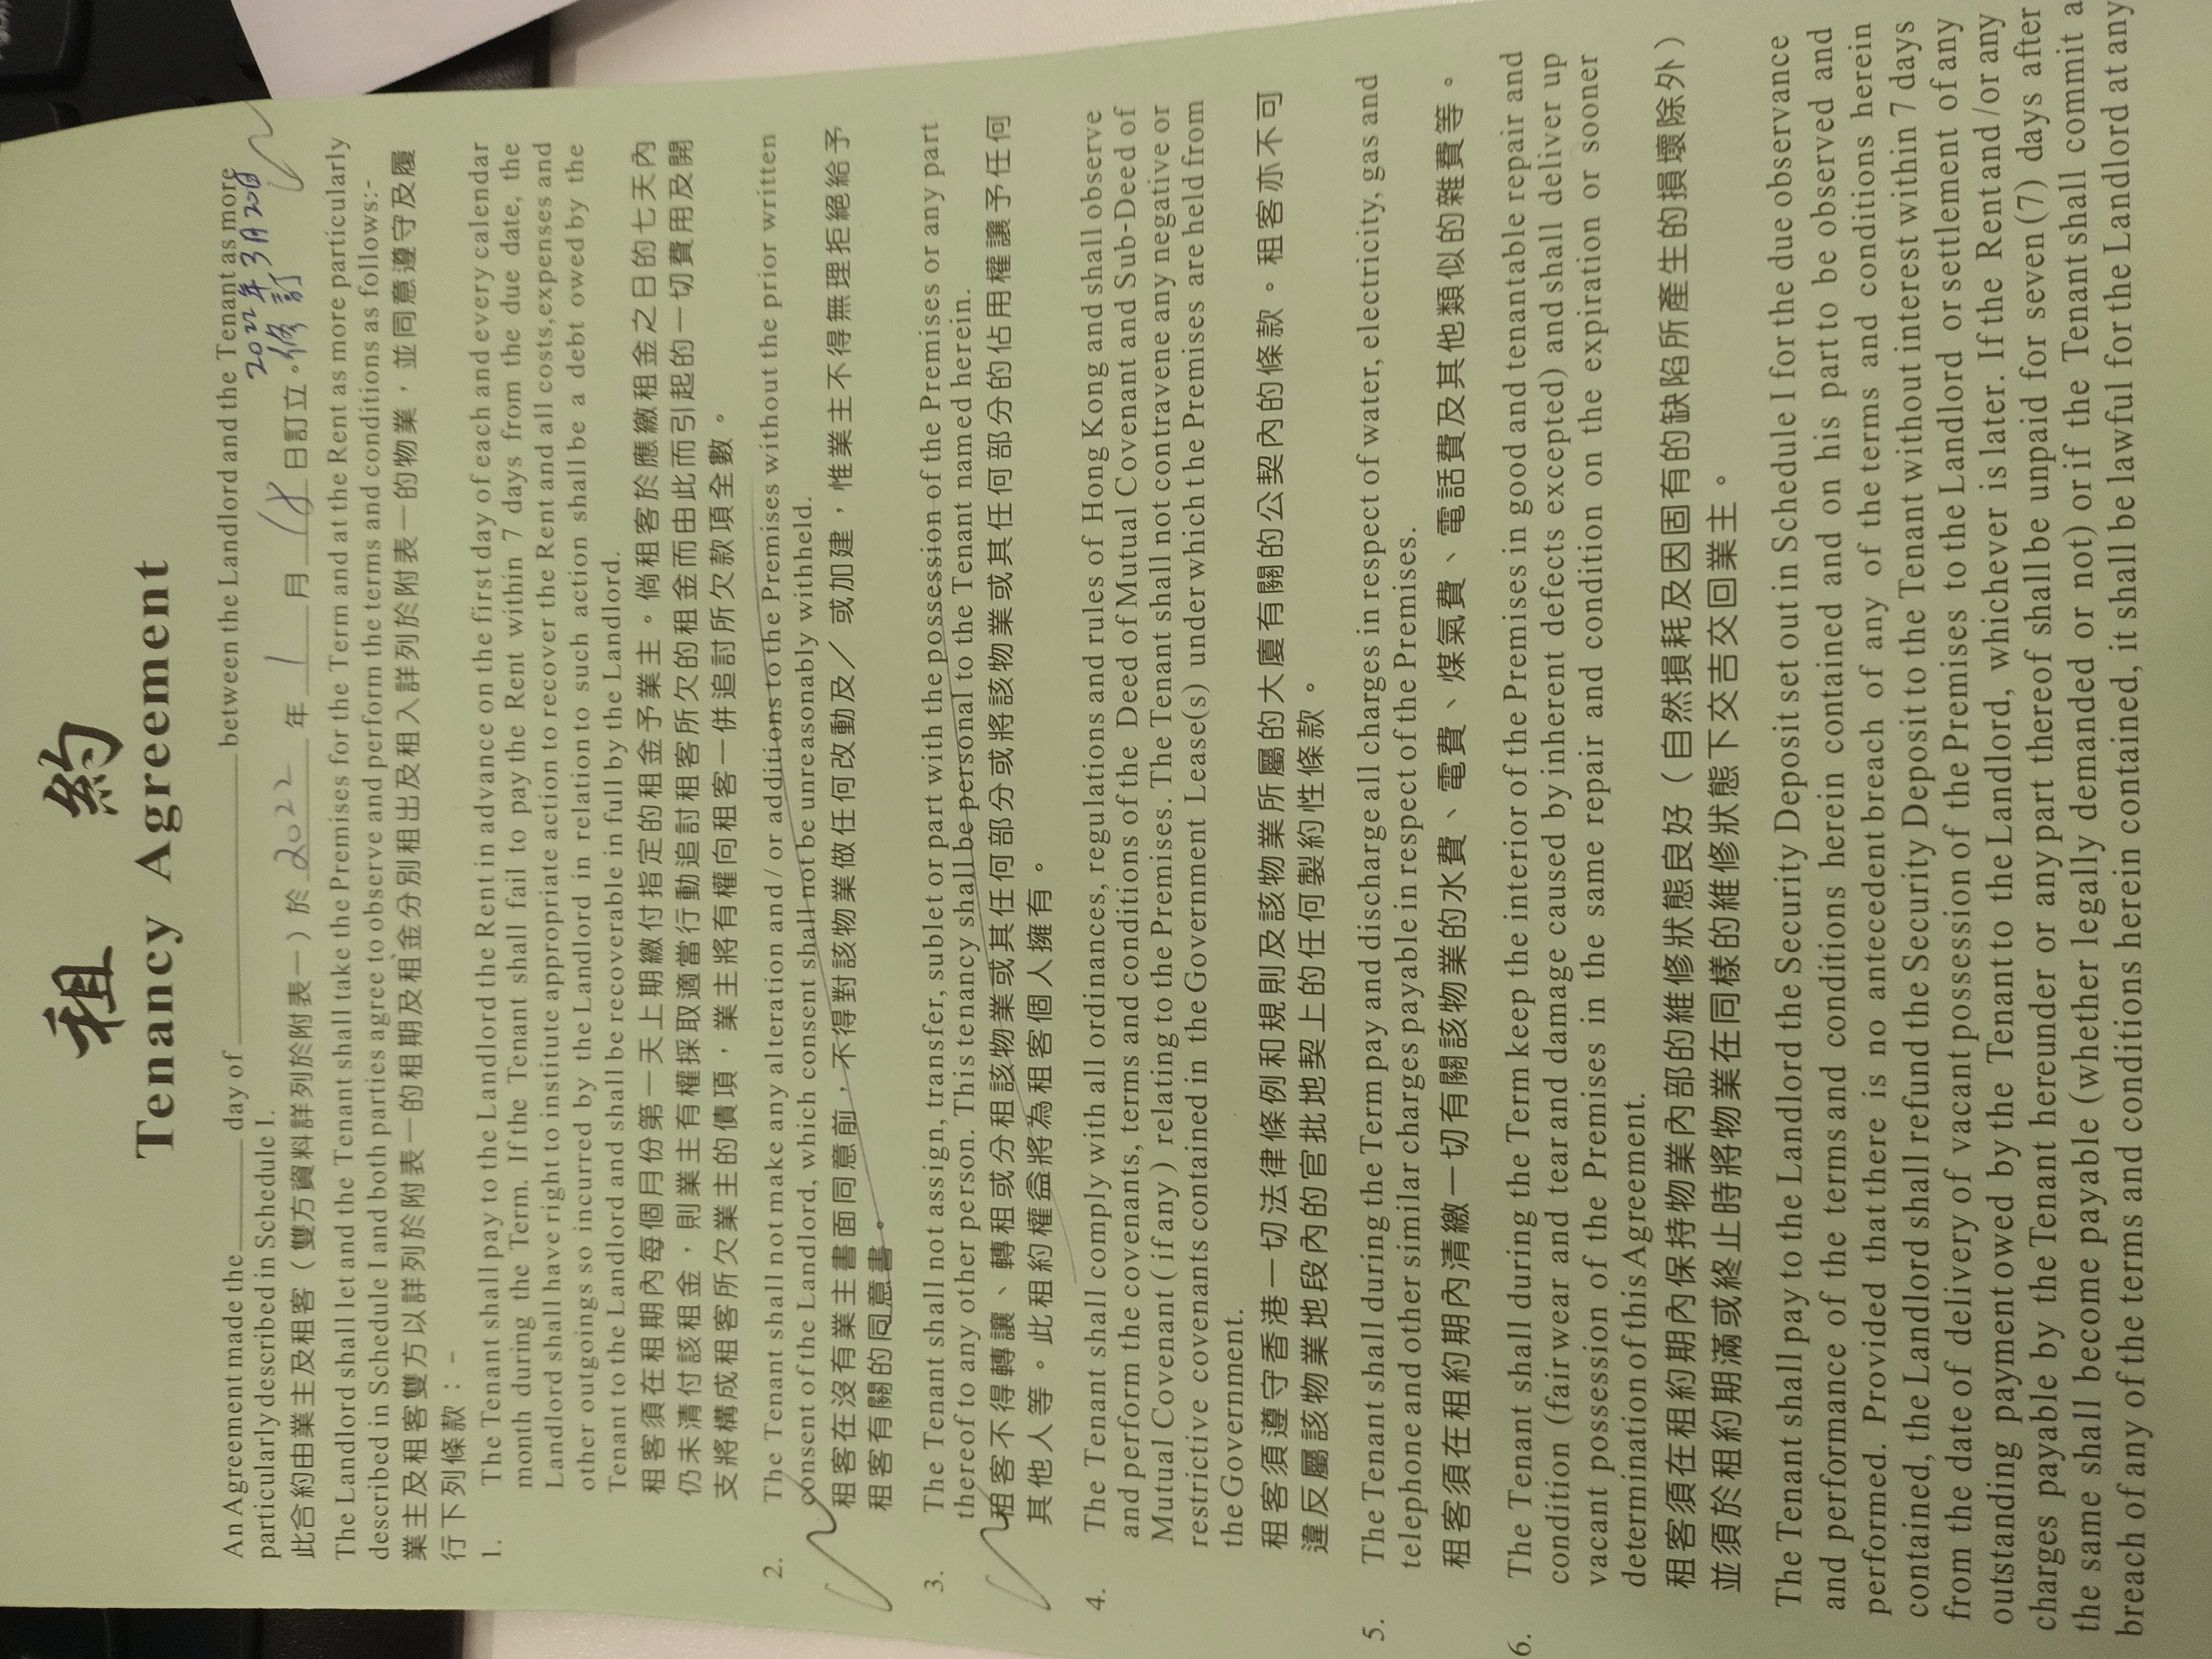 租約
Tenancy Agreement
An Agreement made the ____ day of ____ between the Landlord and the Tenant as more
particularly described in Schedule I.
2022年3月20日
此合約由業主及租客（雙方資料詳列於附表一）於 2022 年 1 月 18 日訂立。修訂
The Landlord shall let and the Tenant shall take the Premises for the Term and at the Rent as more particularly
described in Schedule I and both parties agree to observe and perform the terms and conditions as follows:-
業主及租客雙方以詳列於附表一的租期及租金分別租出及租入詳列於附表一的物業，並同意遵守及履
行下列條款：-
1. The Tenant shall pay to the Landlord the Rent in advance on the first day of each and every calendar
month during the Term. If the Tenant shall fail to pay the Rent within 7 days from the due date, the
Landlord shall have right to institute appropriate action to recover the Rent and all costs,expenses and
other outgoings so incurred by the Landlord in relation to such action shall be a debt owed by the
Tenant to the Landlord and shall be recoverable in full by the Landlord.
租客須在租期內每個月份第一天上期繳付指定的租金予業主。倘租客於應繳租金之日的七天內
仍未清付該租金，則業主有權採取適當行動追討租客所欠的租金而由此而引起的一切費用及開
支將構成租客所欠業主的債項，業主將有權向租客一併追討所欠款項全數。
2. The Tenant shall not make any alteration and / or additions to the Premises without the prior written
consent of the Landlord, which consent shall not be unreasonably withheld.
租客在沒有業主書面同意前，不得對該物業做任何改動及／或加建，惟業主不得無理拒絕給予
租客有關的同意書。
3. The Tenant shall not assign, transfer, sublet or part with the possession of the Premises or any part
thereof to any other person. This tenancy shall be personal to the Tenant named herein.
租客不得轉讓、轉租或分租該物業或其任何部分或將該物業或其任何部分的佔用權讓予任何
其他人等。此租約權益將為租客個人擁有。
4. The Tenant shall comply with all ordinances, regulations and rules of Hong Kong and shall observe
and perform the covenants, terms and conditions of the Deed of Mutual Covenant and Sub-Deed of
Mutual Covenant ( if any ) relating to the Premises. The Tenant shall not contravene any negative or
restrictive covenants contained in the Government Lease(s) under which the Premises are held from
the Government.
租客須遵守香港一切法律條例和規則及該物業所屬的大廈有關的公契內的條款。租客亦不可
違反屬該物業地段內的官批地契上的任何製約性條款。
5. The Tenant shall during the Term pay and discharge all charges in respect of water, electricity, gas and
telephone and other similar charges payable in respect of the Premises.
租客須在租約期內清繳一切有關該物業的水費、電費、煤氣費、電話費及其他類似的雜費等。
6. The Tenant shall during the Term keep the interior of the Premises in good and tenantable repair and
condition (fair wear and tear and damage caused by inherent defects excepted) and shall deliver up
vacant possession of the Premises in the same repair and condition on the expiration or sooner
determination of this Agreement.
租客須在租約期內保持物業內部的維修狀態良好（自然損耗及因固有的缺陷所產生的損壞除外）
並須於租約期滿或終止時將物業在同樣的維修狀態下交吉交回業主。
The Tenant shall pay to the Landlord the Security Deposit set out in Schedule I for the due observance
and performance of the terms and conditions herein contained and on his part to be observed and
performed. Provided that there is no antecedent breach of any of the terms and conditions herein
contained, the Landlord shall refund the Security Deposit to the Tenant without interest within 7 days
from the date of delivery of vacant possession of the Premises to the Landlord or settlement of any
outstanding payment owed by the Tenant to the Landlord, whichever is later. If the Rent and/or any
charges payable by the Tenant hereunder or any part thereof shall be unpaid for seven (7) days after
the same shall become payable (whether legally demanded or not) or if the Tenant shall commit a
breach of any of the terms and conditions herein contained, it shall be lawful for the Landlord at any